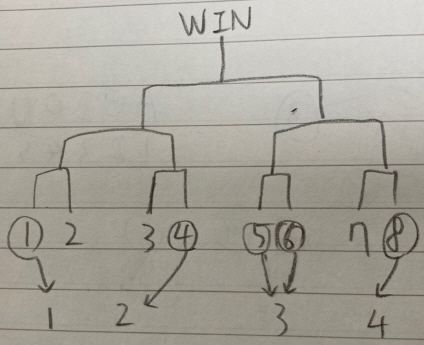 WIN
① 2 3 ④ ⑤ ⑥ 7 ⑧
1 2 3 4